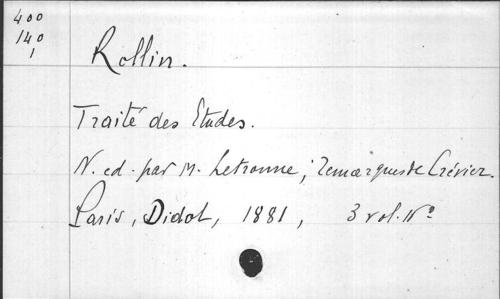 400
140
1
Rollin.
Traité des Etudes.
N. ed. par M. Letronne; remarques de Crévier.
Paris, Didot, 1881, 3 vol. N°